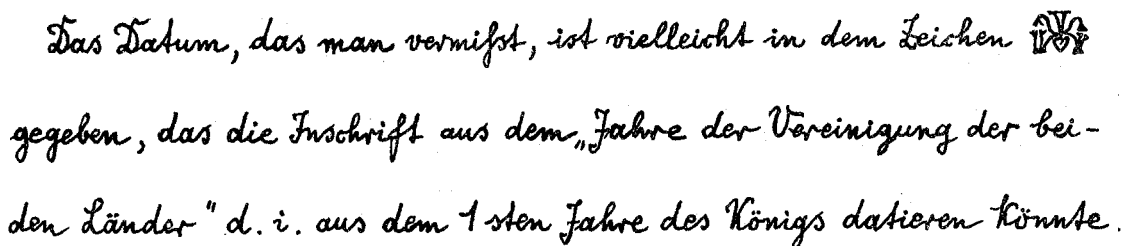 Das Datum, das man vermißt, ist vielleicht in dem Zeichen
gegeben, das die Inschrift aus dem „Jahre der Vereinigung der bei-
den Länder" d. i. aus dem 1 sten Jahre des Königs datieren könnte.